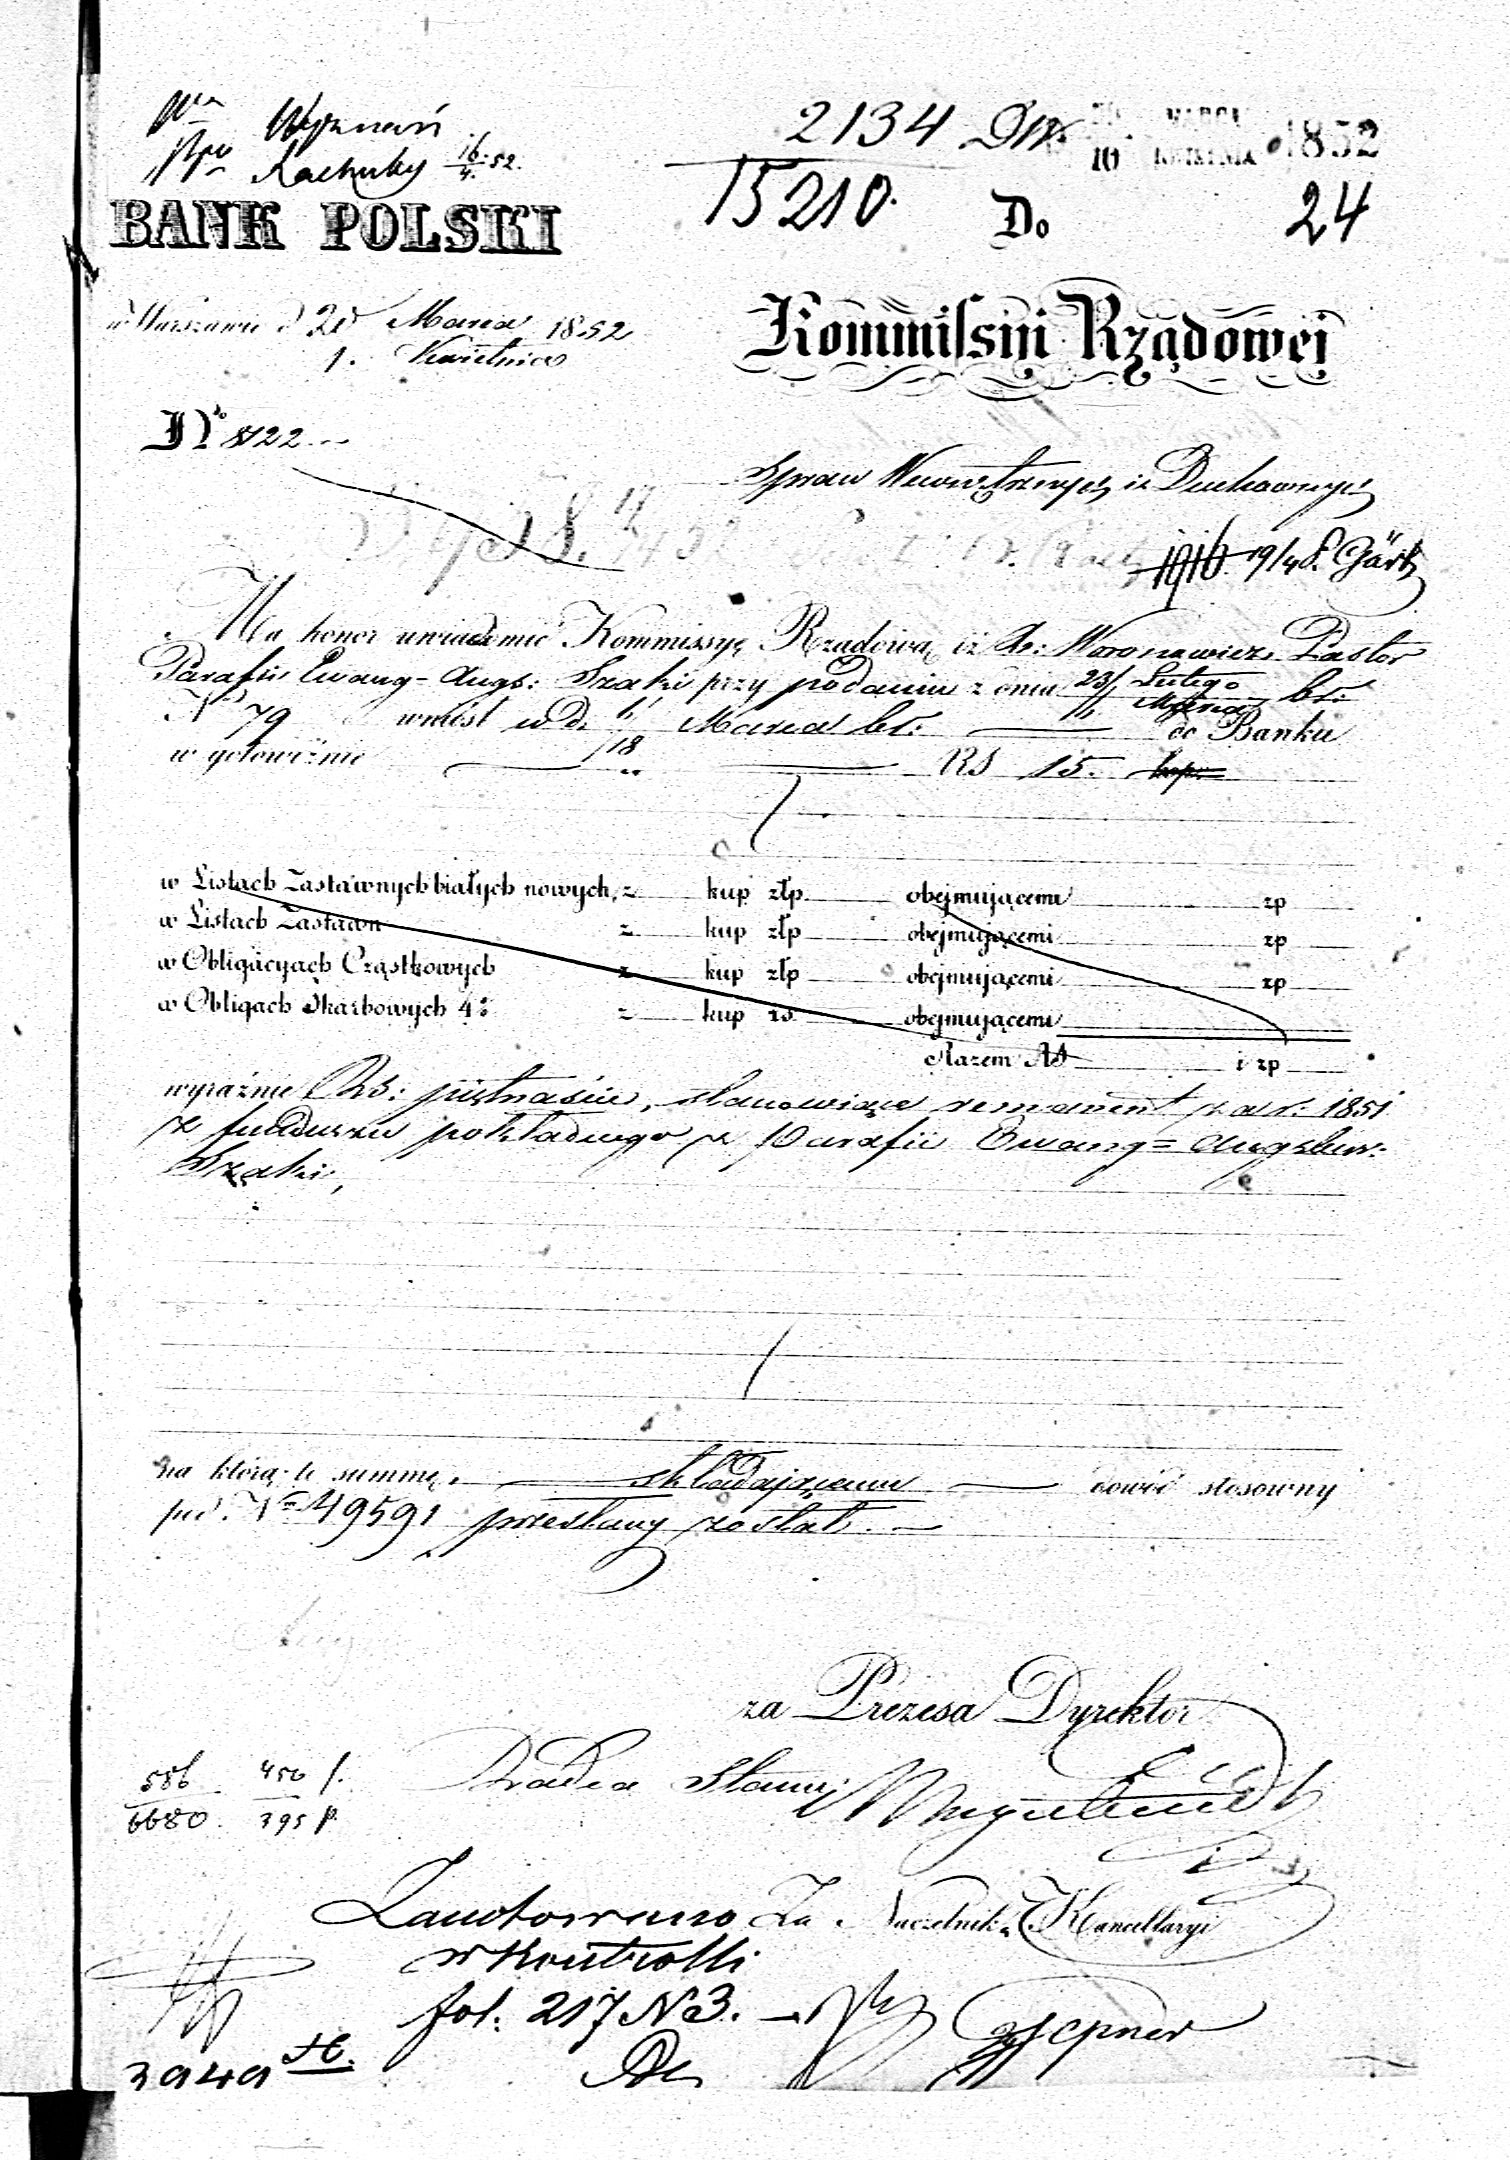 Wyznań
16/4 52.
2134
15210.
10 KWIETNIA 1852
BANK POLSKI
Do
24
w Warszawie d 20 Marca 1852
1. Kwietnia
Kommissyi Rządowej
No 8122
Spraw Wewnętrznych i Duchownych
19/4 8.
Ma honor uwiadomić Kommissyę Rządową iż Xs: Woronowicz Pastor
Parafii Ewang-Augs: Szaki przy podaniu z dnia 23/ Lutego
Marca br:
No 79 wniósł w d. 6/18 Marca br: do Banku
w gotowiźnie RS 15. kop:
w Listach Zastawnych białych nowych, z kup złp obejmującemi zp
w Listach Zastawn z kup złp obejmującemi zp
w Obligacyach Cząstkowych z kup złp obejmującemi zp
w Obligach Skarbowych 4% z kup rs obejmującemi
Razem RS i zp
wyraźnie Rs: piętnaście, stanowiące remanent za r: 1851
z funduszu pokładnego z Parafii Ewang= Augsbur:
Szaki,
na którą to summę składającemu dowód stosowny
pod No 49591 przesłany został.
za Prezesa Dyrektor
Radca Stanu
586 450 f.
6680 395 p.
Zanotowano Za Naczelnika Kancellaryi
w Kontrolli
fol: 217 No 3.
3949